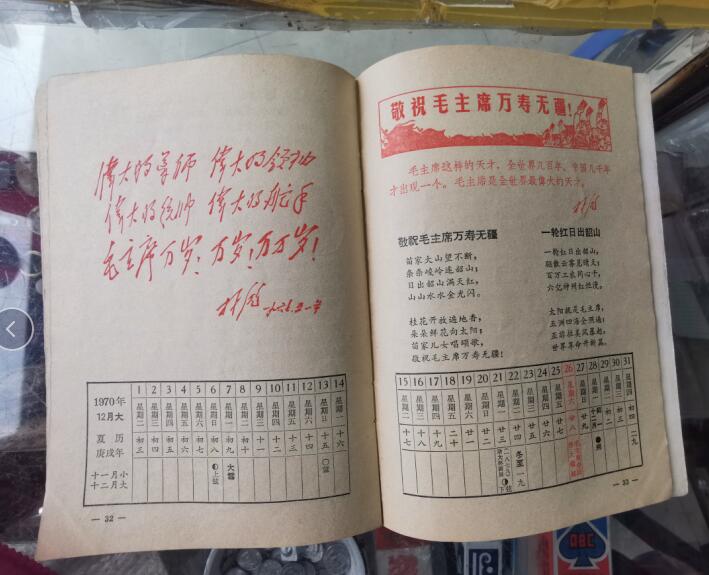 偉大的导师 偉大的领袖
偉大的统帅 偉大的舵手
毛主席万岁！万岁！万万岁！
林彪
1970年
12月大
1 2 3 4 5 6 7 8 9 10 11 12 13 14
星期二 星期三 星期四 星期五 星期六 星期日 星期一 星期二 星期三 星期四 星期五 星期六 星期日 星期一
夏历
庚戌年
初三 初四 初五 初六 初七 初八 初九 初十 十一 十二 十三 十四 十五 十六
十一月小
十二月大
上弦 大雪 望
— 32 —
敬祝毛主席万寿无疆！
毛主席这样的天才，全世界几百年、中国几千年
才出现一个。毛主席是全世界最偉大的天才。
林彪
敬祝毛主席万寿无疆
苗家大山望不断，
条条峻岭连韶山；
日出韶山满天红，
山山水水金光闪。
桂花开放遍地香，
朵朵鲜花向太阳；
苗家儿女唱颂歌，
敬祝毛主席万寿无疆！
一轮红日出韶山
一轮红日出韶山，
驱散云雾见晴天；
百万工农同心干，
六亿神州红烂漫。
太阳就是毛主席，
五洲四海全照遍；
亚非拉美风雷起，
世界革命开新篇。
15 16 17 18 19 20 21 22 23 24 25 26 27 28 29 30 31
星期二 星期三 星期四 星期五 星期六 星期日 星期一 星期二 星期三 星期四 星期五 星期六 星期日 星期一 星期二 星期三 星期四
十七 十八 十九 二十 廿一 廿二 廿三 廿四 廿五 廿六 廿七 廿八 廿九 十二月 初二 初三 初四
下弦 冬至 一九 朔 二九
— 33 —
ABC